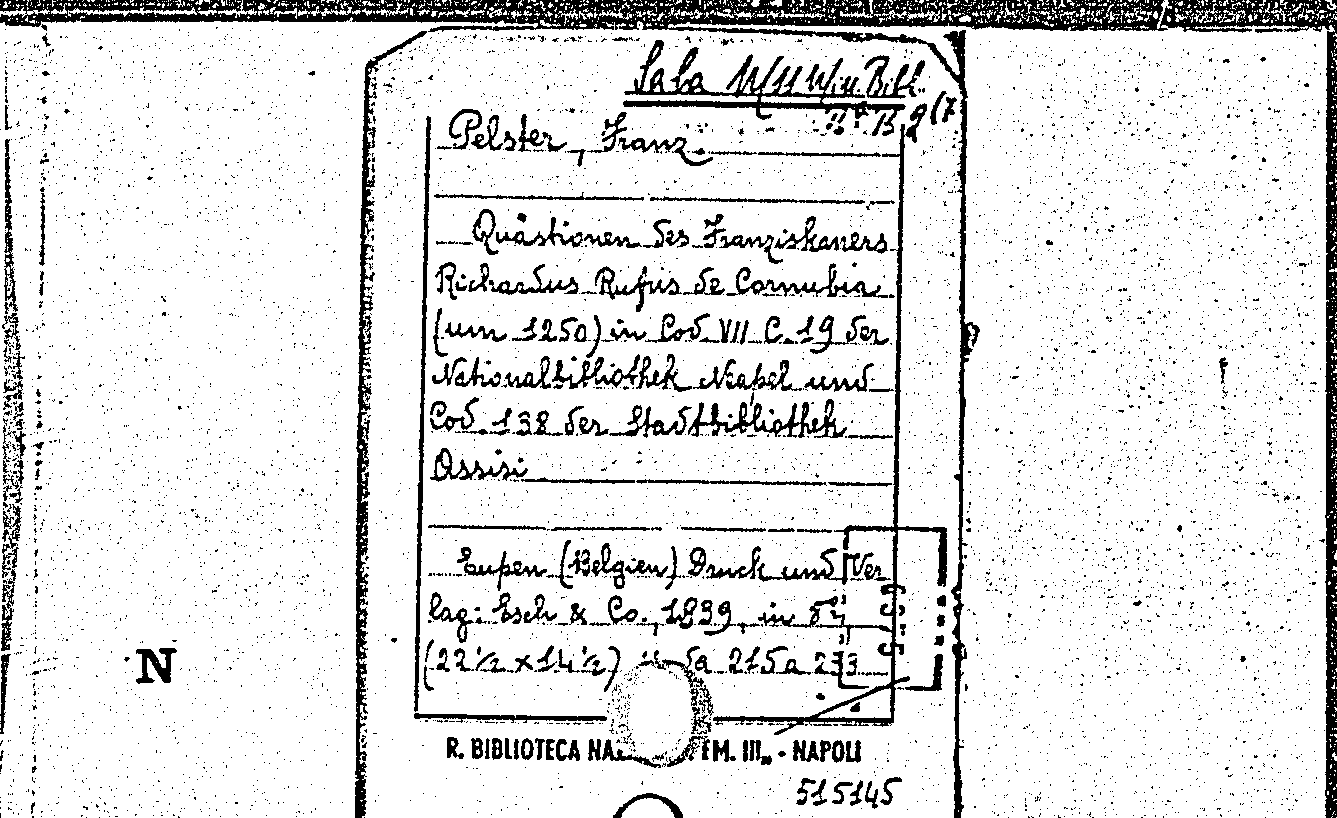 Sala
Bª B 2(7
Pelster, Franz.
Quästionen des Franziskaners
Richardus Rufus de Cornubia
(um 1250) in Cod. VII C. 19 der
Nationalbibliothek Neapel und
Cod. 138 der Stadtbibliothek
Assisi
Eupen (Belgien) Druck und Ver
lag: Esch & Co., 1839, in 8°,
(22 ½ x 14 ½) da 215 a 233
R. BIBLIOTECA EM. III„ - NAPOLI
515145
N